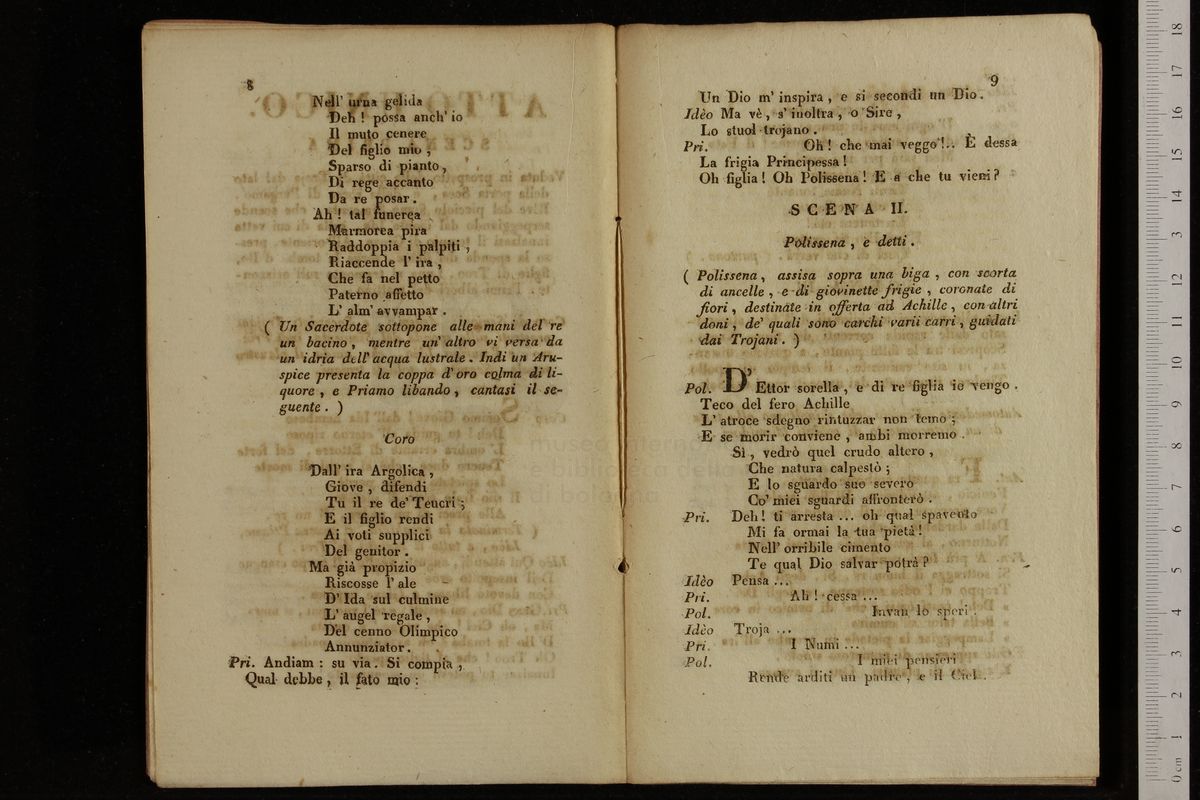 8
Nell' urna gelida
Deh ! possa anch' io
Il muto cenere
Del figlio mio ,
Sparso di pianto ,
Di rege accanto
Da re posar .
Ah ! tal funerea
Marmorea pira
Raddoppia i palpiti ,
Riaccende l' ira ,
Che fa nel petto
Paterno affetto
L' alm' avvampar .
( Un Sacerdote sottopone alle mani del re
un bacino , mentre un' altro vi versa da
un idria dell' acqua lustrale . Indi un Aru-
spice presenta la coppa d' oro colma di li-
quore , e Priamo libando , cantasi il se-
guente . )
Coro
Dall' ira Argolica ,
Giove , difendi
Tu il re de' Teucri ;
E il figlio rendi
Ai voti supplici
Del genitor .
Ma già propizio
Riscosse l' ale
D' Ida sul culmine
L' augel regale ,
Del cenno Olimpico
Annunziator .
Pri. Andiam : su via . Si compia ,
Qual debbe , il fato mio :
9
Un Dio m' inspira , e si secondi un Dio .
Idèo Ma vè , s' inoltra , o Sire ,
Lo stuol trojano .
Pri. Oh ! che mai veggo !.. È dessa
La frigia Principessa !
Oh figlia ! Oh Polissena ! E a che tu vieni ?
SCENA II.
Polissena , e detti .
( Polissena , assisa sopra una biga , con scorta
di ancelle , e di giovinette frigie , coronate di
fiori , destinate in offerta ad Achille , con altri
doni , de' quali sono carchi varii carri , guidati
dai Trojani . )
Pol. D' Ettor sorella , e di re figlia io vengo .
Teco del fero Achille
L' atroce sdegno rintuzzar non temo ;
E se morir conviene , ambi morremo .
Sì , vedrò quel crudo altero ,
Che natura calpestò ;
E lo sguardo suo severo
Co' miei sguardi affronterò .
Pri. Deh ! ti arresta ... oh qual spavento
Mi fa ormai la tua pietà !
Nell' orribile cimento
Te qual Dio salvar potrà ?
Idèo Pensa ...
Pri. Ah ! cessa ...
Pol. Invan lo speri .
Idèo Troja ...
Pri. I Numi ...
Pol. I miei pensieri
Rende arditi un padre , e il Ciel .